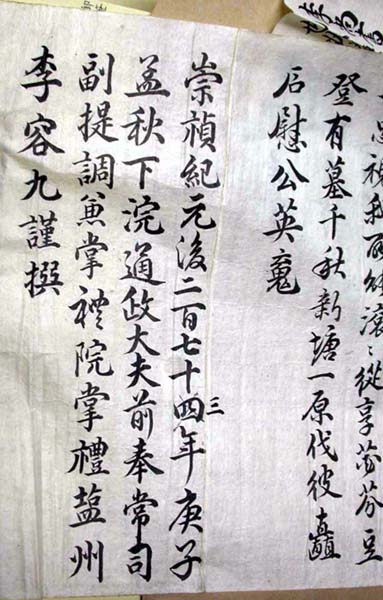 我滾〻從享苾芬豆
登有墓千秋新塘一原伐彼矗
石慰公英魂
崇禎紀元後二百七十四三年庚子
孟秋下浣通政大夫前奉常司
副提調兼掌禮院掌禮塩州
李容九謹撰